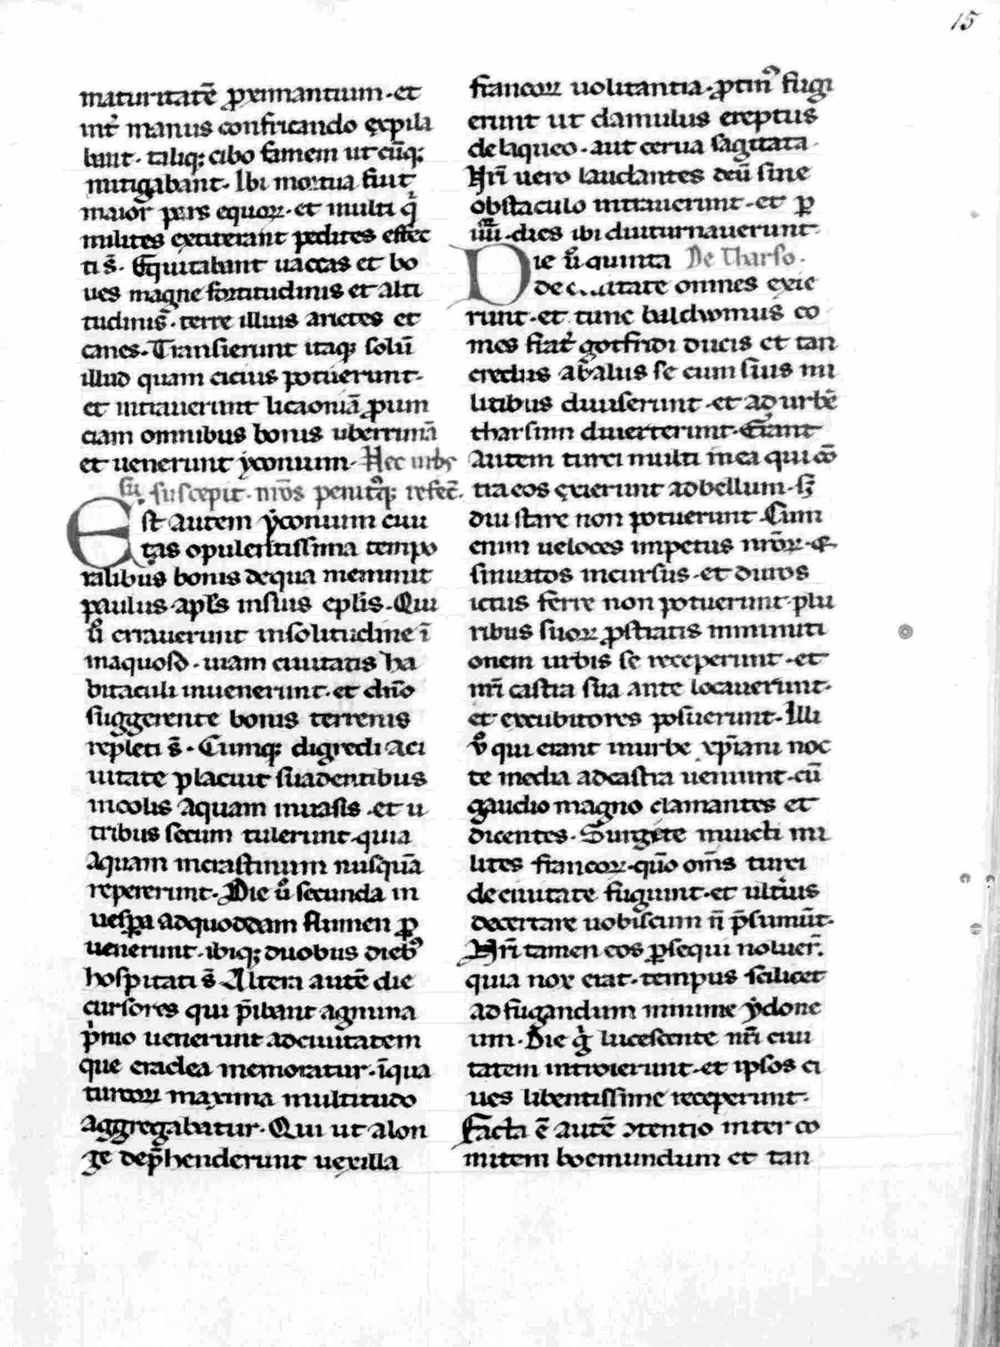 15
maturitatē ꝓximantium. et
int̄ manus confricando expila
bant. taliq; cibo famem utcūq;
mitigabant. Ibi mortua fuit
maior pars equoꝝ. et multi q̇
milites extiterant pedites effec
ti s̄. Equitabant uaccas et bo
ues magne fortitudinis et alti
tudinis. terre illius arietes et
canes. Transierunt itaq; solū
illud quam cicius potuerunt.
et intrauerunt licaoniā ꝓuin
ciam omnibus bonis uberrimā
et uenerunt yconium. Hec urbs
suscepit. nr̄os penitꝰq; refec̄.
Est autem yconium ciui
tas opulentissima tempo
ralibus bonis de qua meminit
paulus apl̄s in suis epl̄is. Qui
ū errauerunt in solitudine ī
inaquosa. uiam ciuitatis ha
bitaculi inuenerunt. et dn̄o
suggerente bonis terrenis
repleti s̄. Cumq; digredi a ci
uitate placuit suadentibus
incolis aquam in uasis. et u
tribus secum tulerunt. quia
aquam in crastinum nusquā
repererunt. Die ū secunda in
uesꝑa ad quoddam flumen ꝑ
uenerunt. ibiq; duobus diebꝰ
hospitati s̄. Altera autē die
cursores qui p̄ibant agmina
p̍mo uenerunt ad ciuitatem
que eraclea memoratur. ī qua
turcoꝝ maxima multitudo
aggregabatur. Qui ut a lon
ge dep̄henderunt uexilla
francoꝝ uolitantia. ꝓtinꝰ fugi
erunt ut damulus ereptus
de laqueo. aut cerua sagittata.
Nr̄i uero laudantes deū sine
obstaculo intrauerunt. et ꝑ
iiii. dies ibi diuturnauerunt.
Die ū quinta De Tharso.
de ciuitate omnes exie
runt. et tunc baldwinus co
mes frat̄ gotfridi ducis et tan
credus ab aliis se cum suis mi
litibus diuiserunt. et ad urbē
tharsum diuerterunt. Erant
autem turci multi in ea qui cō
tra eos exierunt ad bellum. sꝫ
diu stare non potuerunt. Cum
enim ueloces impetus nr̄oꝝ. et
sinuatos incursus. et duros
ictus ferre non potuerunt. plu
ribus suoꝝ ꝓstratis in muniti
onem urbis se receperunt. et
nr̄i castra sua ante locauerunt.
et excubitores posuerunt. Illi
ū qui erant in urbe xp̄iani noc
te media ad castra ueniunt. cū
gaudio magno clamantes et
dicentes. Surgite inuicti mi
lites francoꝝ. quō om̄s turci
de ciuitate fugiunt. et ult̍ius
decertare uobiscum n̄ p̄sumūt.
Nr̄i tamen eos ꝑsequi noluer̄.
quia nox erat. tempus scilicet
ad fugandum minime ydone
um. Die g̍ lucescente nr̄i ciui
tatem introierunt. et ipsos ci
ues libentissime receperunt.
Facta ē autē ꝯtentio inter co
mitem boemundum et tan